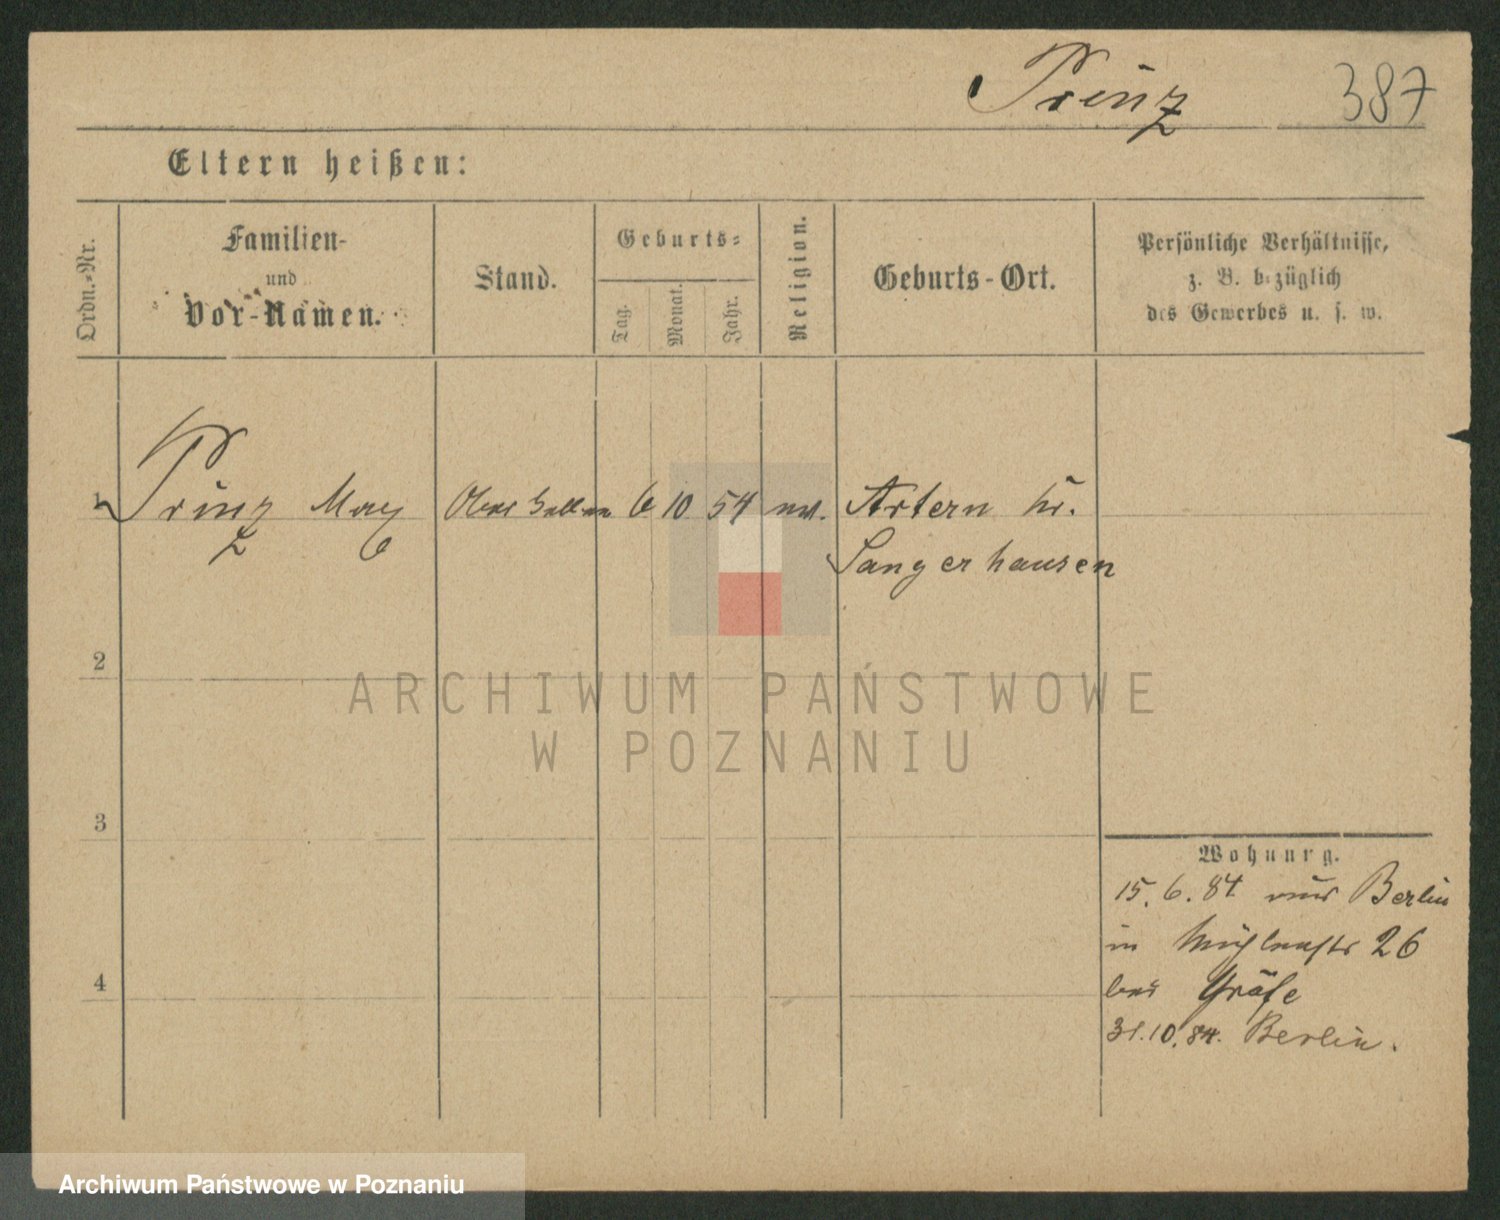 Prinz 387
Eltern heißen:
Ordn.-Nr.
Familien-
und
Vor-Namen.
Stand.
Geburts-
Tag.
Monat.
Jahr.
Religion.
Geburts-Ort.
Persönliche Verhältnisse,
z. B. bezüglich
des Gewerbes u. s. w.
1 Prinz Max 6 10 54 Artern Kr.
Sangerhausen
2
ARCHIWUM PAŃSTWOWE
W POZNANIU
3
Wohnung.
15. 6. 84 aus Berlin
in Mühlenstr 26
bei Gräfe
4
31.10.84. Berlin.
Archiwum Państwowe w Poznaniu